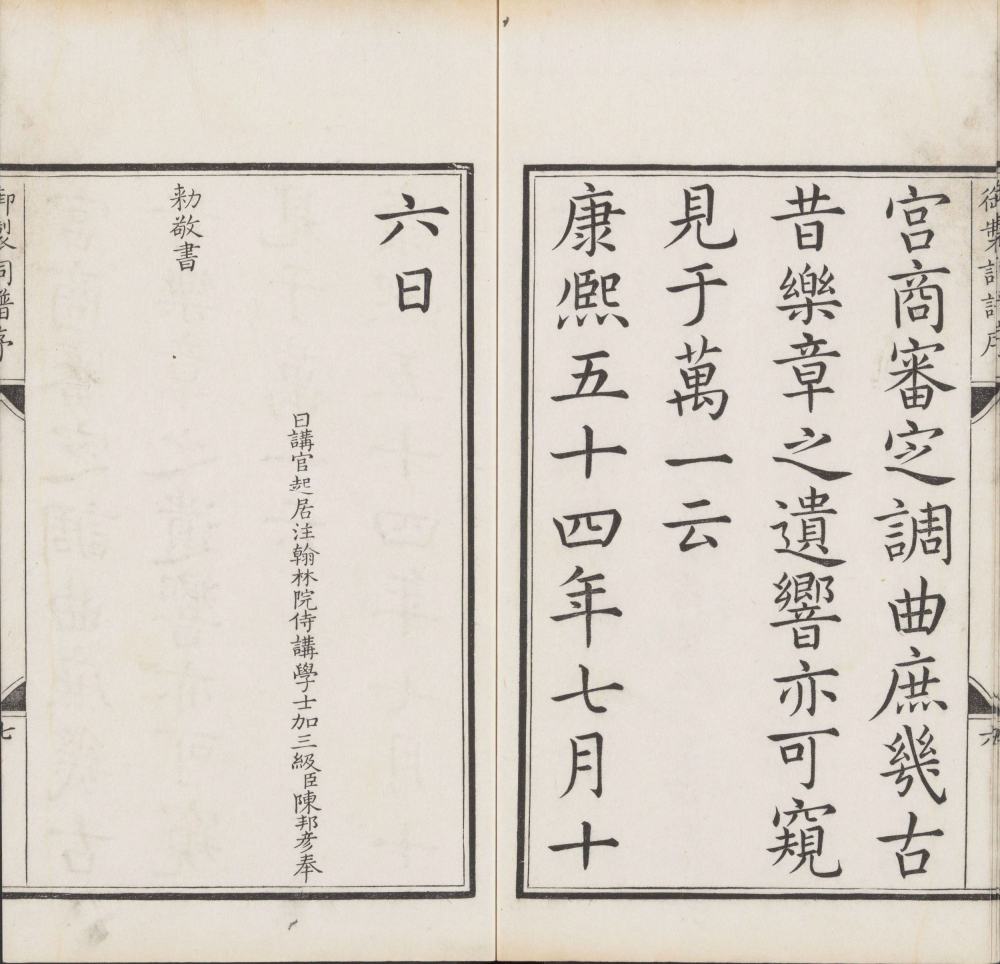 御製詞譜序
六
宮商審定調曲庶幾古
昔樂章之遺響亦可窺
見于萬一云
康熙五十四年七月十
六日
日講官起居注翰林院侍講學士加三級臣陳邦彦奉
勅敬書
御製詞譜序
七